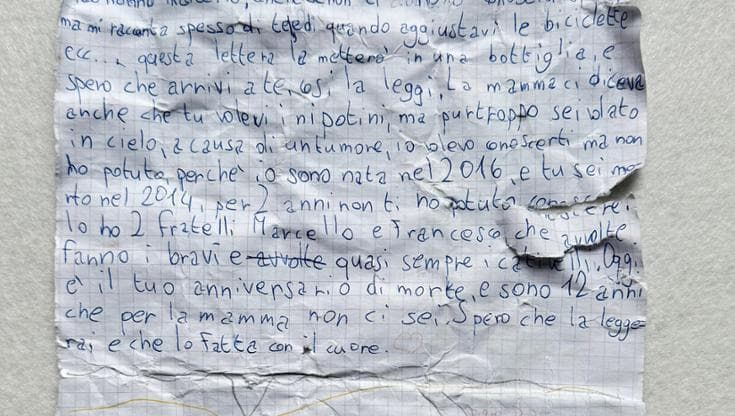 ma mi racconta spesso di te e di quando aggiustavi le biciclette
ecc... questa lettera la metterò in una bottiglia, e
spero che arrivi a te, così la leggi. La mamma ci diceva
anche che tu volevi i nipotini, ma purtroppo sei volato
in cielo, a causa di un tumore, io volevo conoscerti ma non
ho potuto, perchè io sono nata nel 2016, e tu sei mo-
rto nel 2014, per 2 anni non ti ho potuto
Io ho 2 fratelli Marcello e Francesco, che avvolte
fanno i bravi e avvolte quasi sempre i cattivelli. Oggi
è il tuo anniversario di morte, e sono 12 anni
che per la mamma non ci sei. Spero che la legge-
rai e che lo fatta con il cuore.